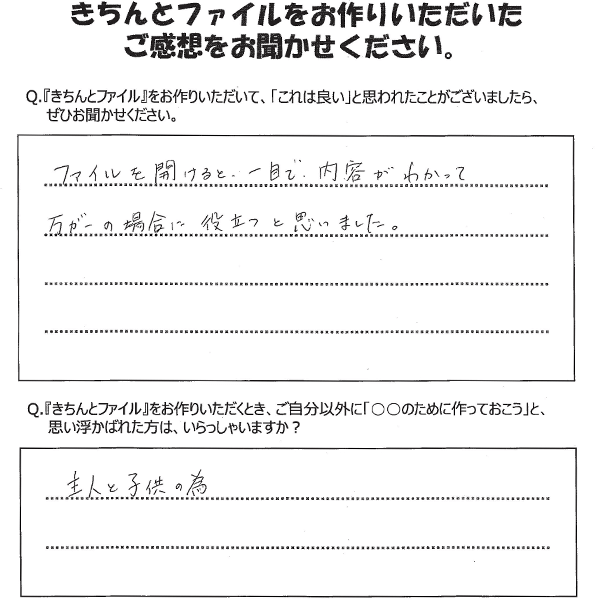 きちんとファイルをお作りいただいた
ご感想をお聞かせください。
Q.『きちんとファイル』をお作りいただいて、「これは良い」と思われたことがございましたら、
ぜひお聞かせください。
ファイルを開けると、一目で、内容がわかって
万が一の場合に役立つと思いました。
Q.『きちんとファイル』をお作りいただくとき、ご自分以外に「○○のために作っておこう」と、
思い浮かばれた方は、いらっしゃいますか？
主人と子供の為